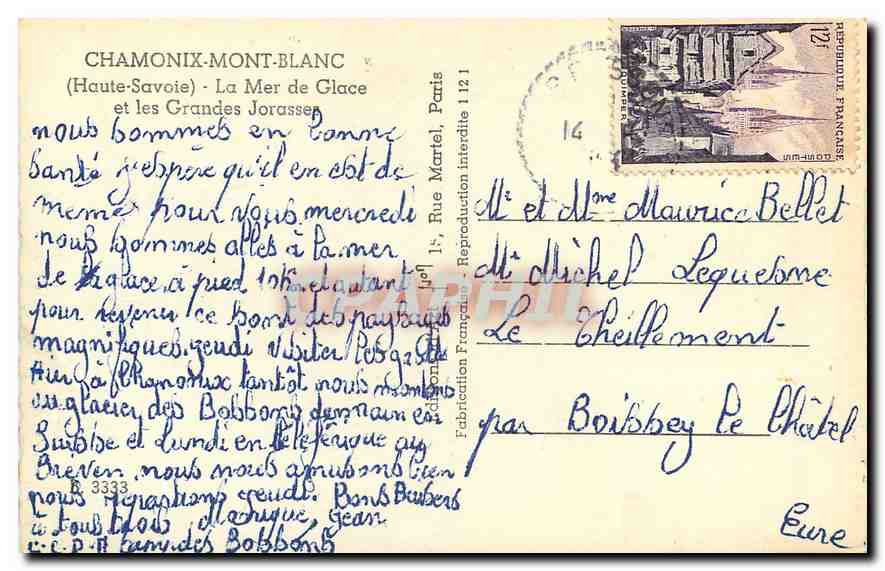 CHAMONIX-MONT-BLANC
(Haute-Savoie) - La Mer de Glace
et les Grandes Jorasses
nous sommes en bonne
santé j'espère qu'il en est de
meme pour vous, mercredi
nous sommes allés à la mer
de glace, à pied et autant
pour revenir ce sont des paysages
magnifiques, jeudi visiter les
à Chamonix tantôt nous montons
au glacier des Bossons demain en
Suisse et Lundi en téléférique au
Breven, nous nous amusons bien
nous repartons jeudi. Bons Baisers
à tous trois Jean
des Bossons
B. 3333
15, Rue Martel, Paris
Fabrication Française - Reproduction interdite 1121
14
12f
REPUBLIQUE FRANÇAISE
POSTES
QUIMPER
CPARPHIL
Mr et Mme Maurice Bellet
Mr Michel Lequesne
Le Theillement
par Boissey le Châtel
Eure